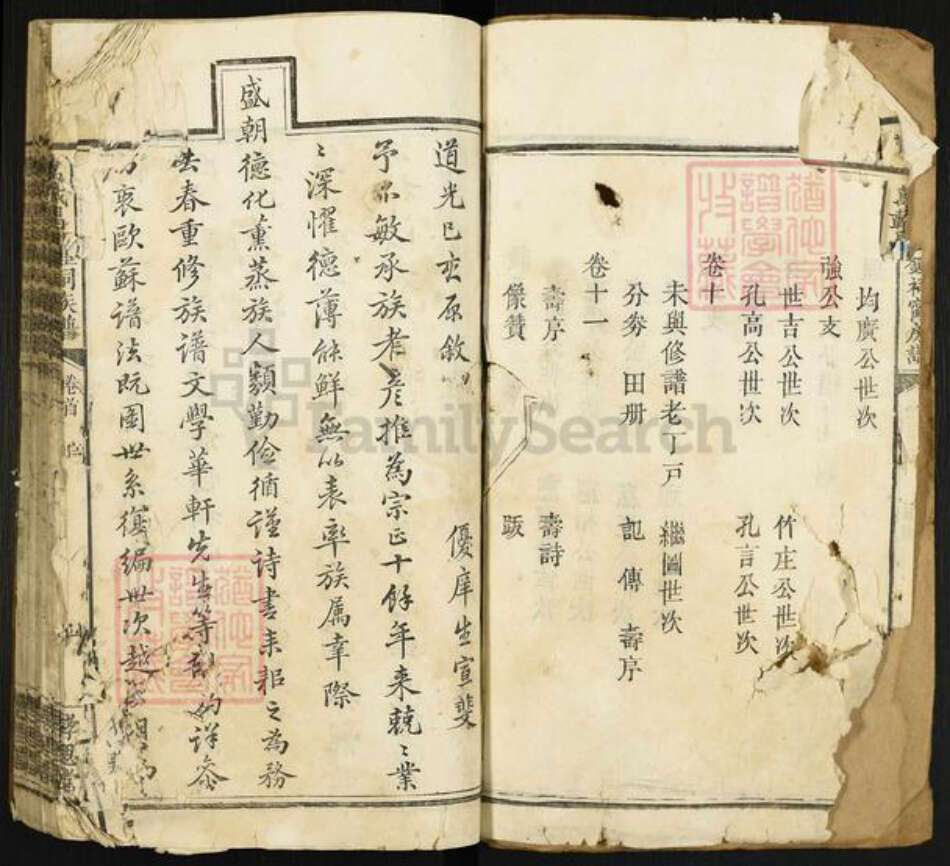 均廣公世次
強公支
世吉公世次 竹庄公世次
孔高公世次 孔言公世次
卷十
未與修譜老丁戸 繼圖世次
分劵 田册 記 傳 壽序
卷十一
壽序 壽詩
像贊 跋
道光已亥原敘 優庠生宣斐
予不敏承族老彦推為宗正十餘年來兢〻業
〻深懼德薄能鮮無以表率族属幸際
盛朝德化薰蒸族人類勤儉循謹詩書耒耜之為務
去春重修族譜文學華軒先生等 約詳叅
衷歐蘇譜法既圖世系復編世次越
祠族譜
卷首
FamilySearch